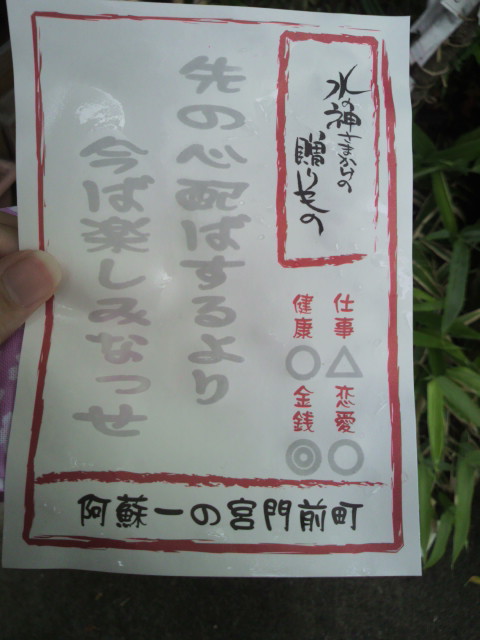 水の神さまからの
贈りもの
仕事 △ 恋愛 ○
健康 ○ 金銭 ◎
先の心配ばするより
今ば楽しみなっせ
阿蘇一の宮門前町